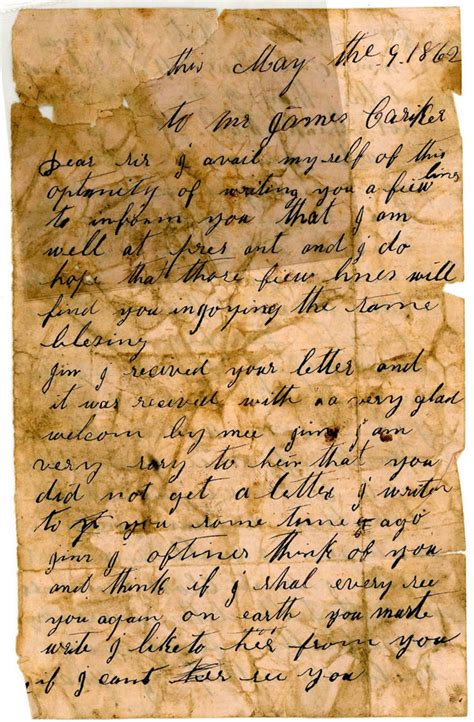 this May the 9. 1862
to Mr James Cariker
Dear sir I avail my self of this
optunity of writing you a fiew lines
to inform you that I am
well at pres ant and I do
hope that those fiew lines will
find you ingoying the same
blesing
Jim I received your letter and
it was received with a very glad
welcom by mee Jim I am
very sory to heir that you
did not get a letter I writen
to you some time ago
Jim I oftines think of you
and think if I shal every see
you again on earth you muste
write I like to heir from you
if I cant see you